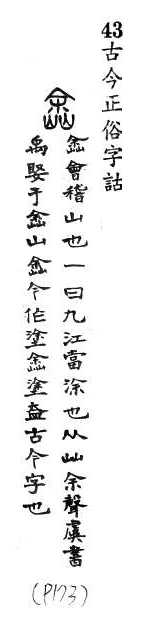 43古今正俗字詁
嵞
嵞會稽山也一曰九江當涂也从屾余聲虞書
禹娶于嵞山嵞今作塗嵞塗盖古今字也
(P173)